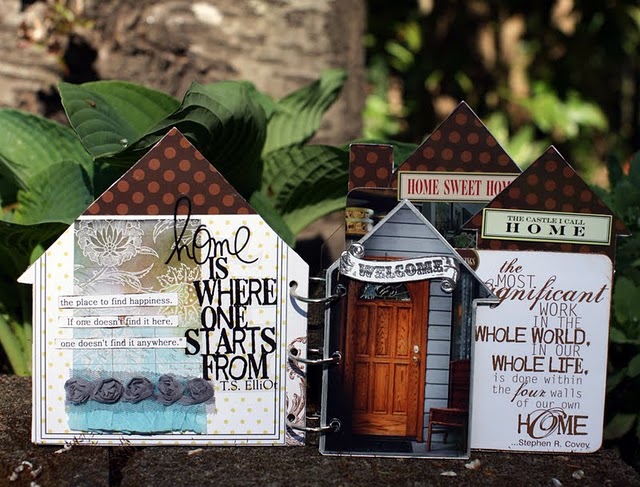 home
IS
WHERE
ONE
STARTS
FROM
T.S. ElliOt
the place to find happiness.
If one doesn't find it here,
one doesn't find it anywhere."
WELCOME
HOME SWEET HOM
THE CASTLE I CALL
HOME
the
MOST
significant
WORK
IN THE
WHOLE WORLD,
IN OUR
WHOLE LIFE,
is done within
the four walls
of our own
HOME
...Stephen R. Covey